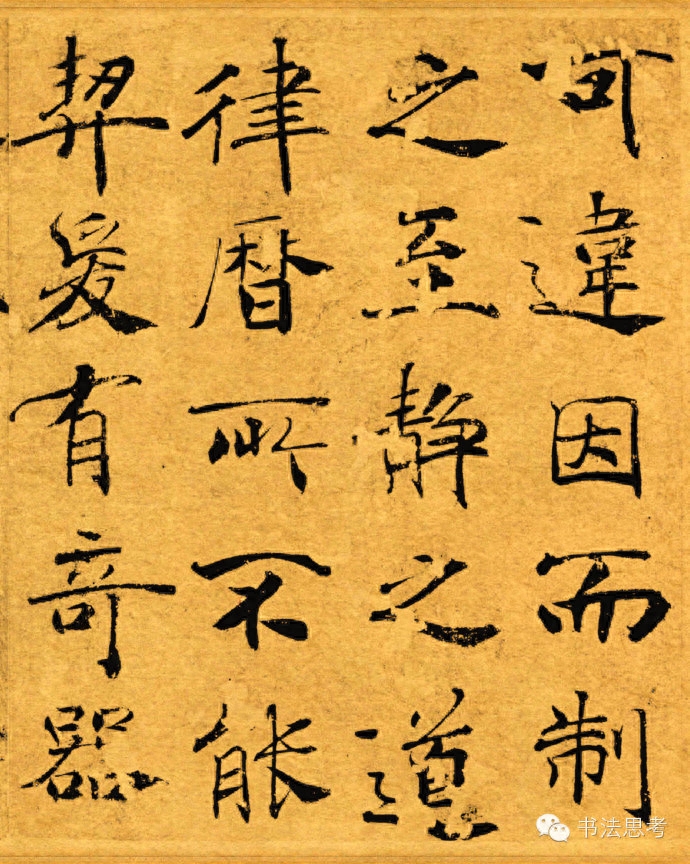 可違因而制
之至靜之道
律曆所不能
契爰有奇器
书法思考